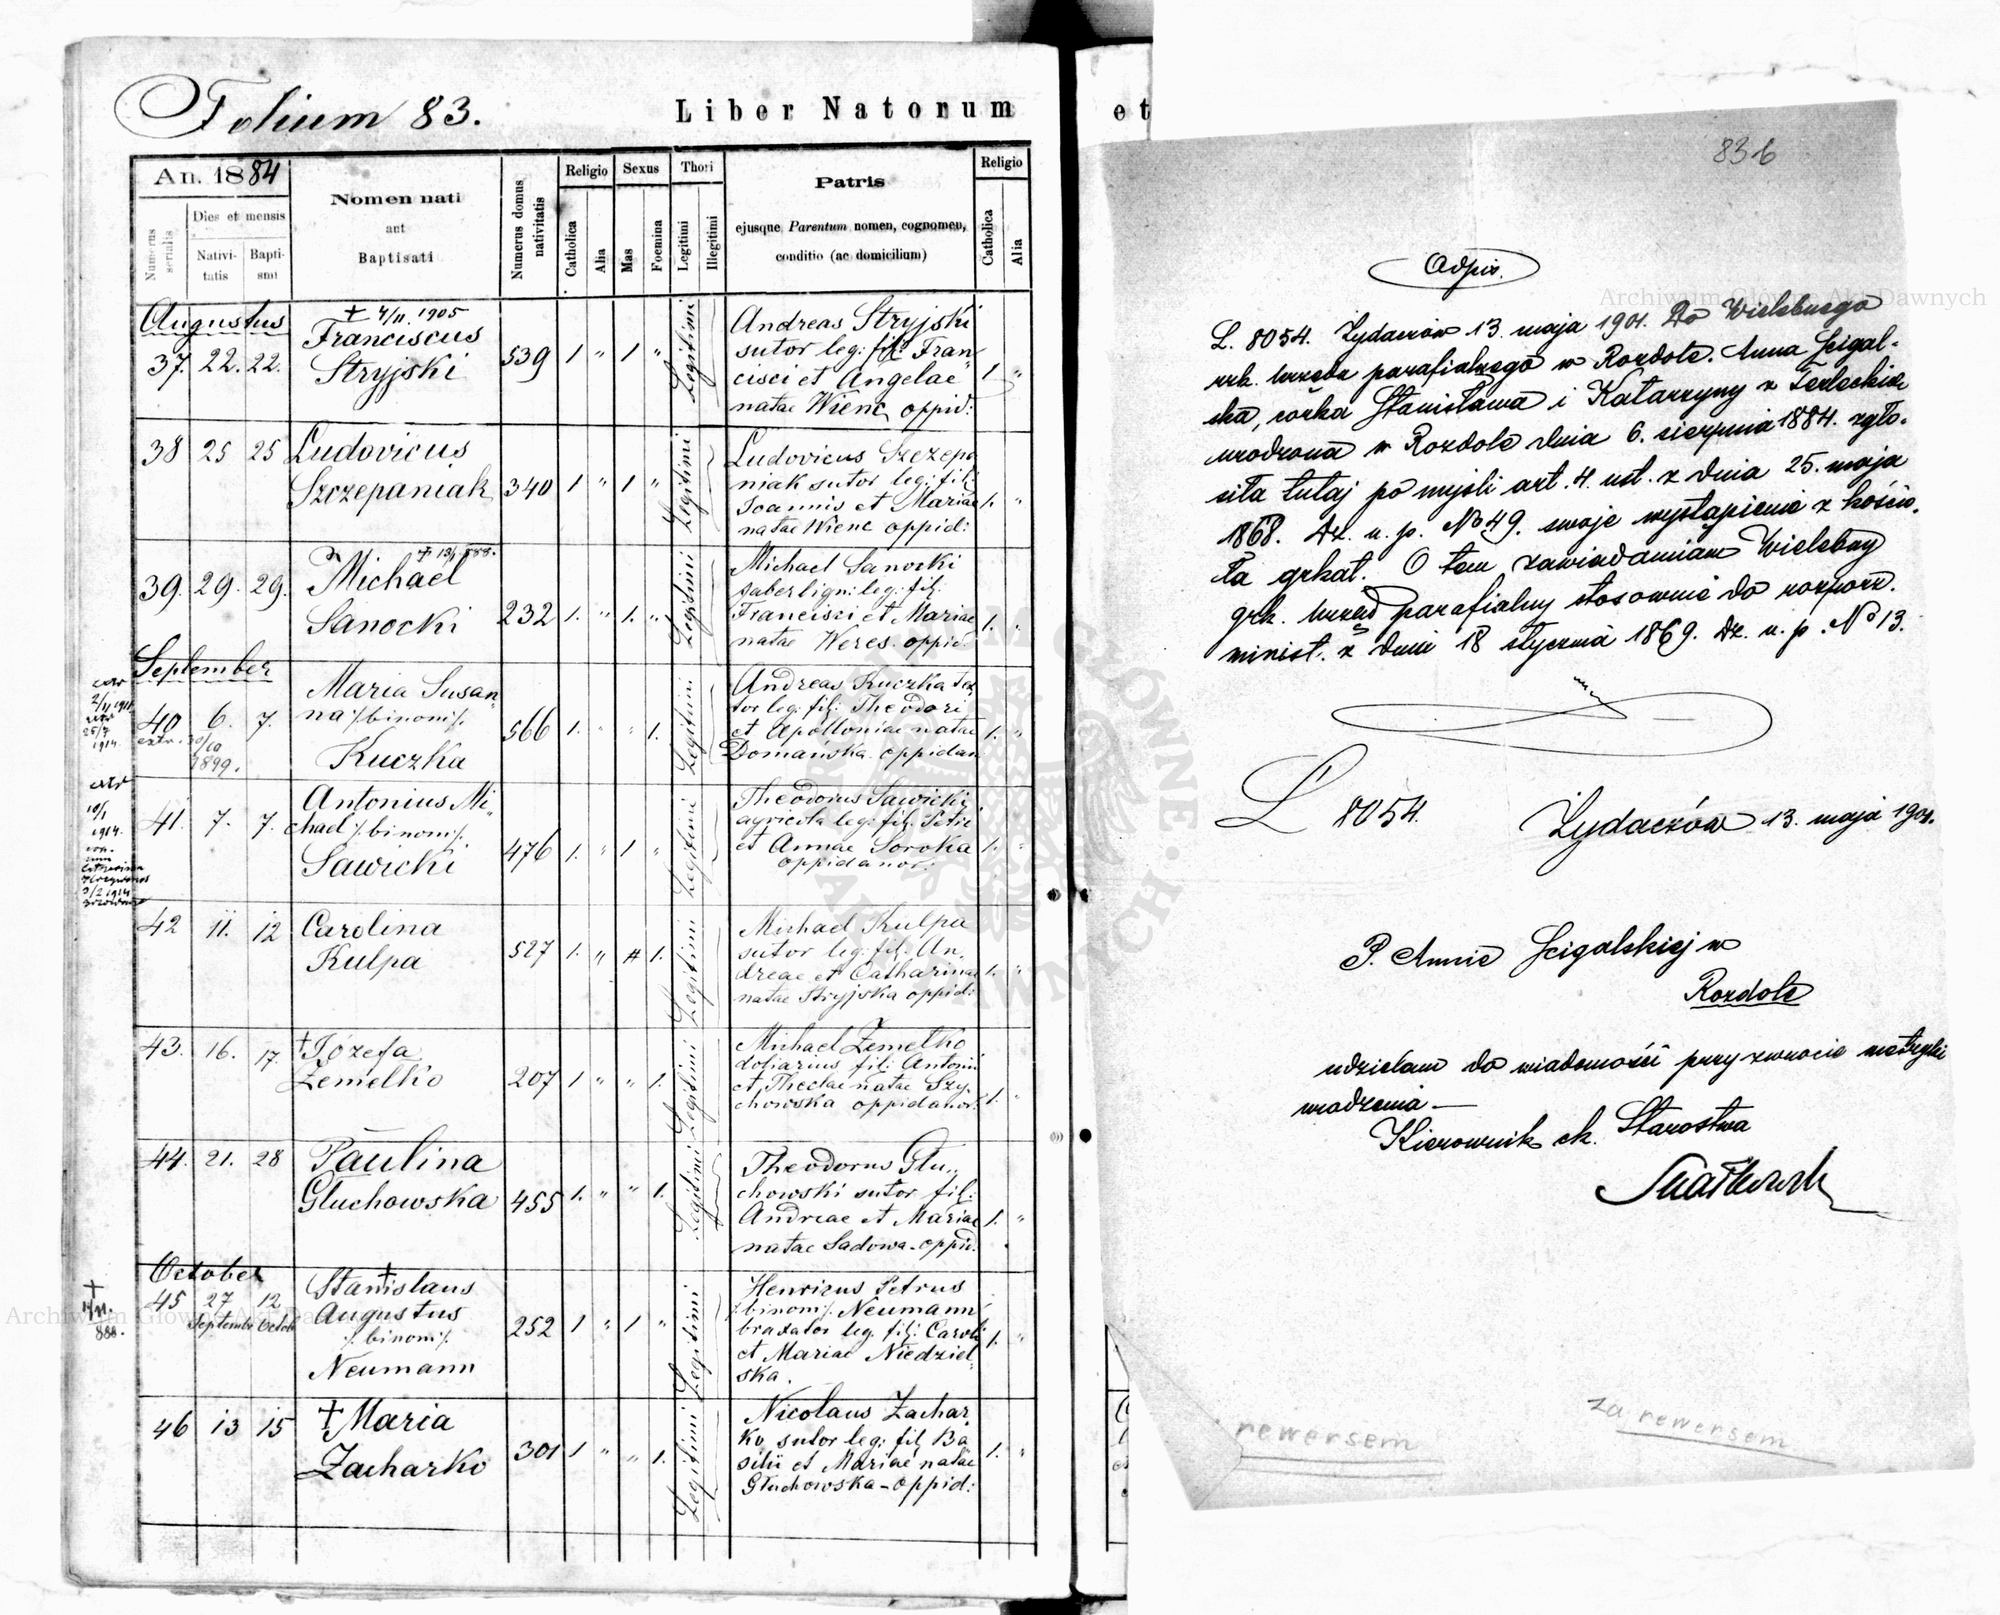 Folium 83.
Liber Natorum
et
An. 1884
Numerus serialis
Dies et mensis
Nativi-
tatis
Bapti-
smi
Nomen nati
aut
Baptisati
Numerus domus
nativitatis
Religio
Catholica
Alia
Sexus
Mas
Foemina
Thori
Legitimi
Illegitimi
Patris
ejusque Parentum nomen, cognomen,
conditio (ac domicilium)
Religio
Catholica
Alia
Augustus
37. 22. 22.
† 4/II. 1905
Franciscus
Stryjski
539 1 " 1 "
Legitimi
Andreas Stryjski
sutor leg: fil: Fran
cisci et Angelae
natae Wienc oppid:
1 "
38 25 25
Ludovicus
Szczepaniak
340 1 " 1 "
Legitimi
Ludovicus Szczepa
niak sutor leg: fil:
Joannis et Mariae
natae Wienc oppid:
1. "
39. 29. 29.
Michael
Sanocki
232 1. " 1. "
Legitimi
Michael Sanocki
faber lign: leg: fil:
Francisci et Mariae
natae Weres. oppid:
1. "
September
40 6. 7.
extr. 30/10
1899.
Maria Susan
na /:binom:/
Kuczka
566 1. " " 1.
Legitimi
Andreas Kuczka tex
tor leg: fil: Theodori
et Apolloniae natae
Domańska oppidan
1. "
41. 7. 7.
Antonius Mi
chael /:binom:/
Sawicki
476 1. " 1 "
Legitimi
Theodorus Sawicki
agricola leg: fil: Petri
et Annae Soroka
oppidanor:
1. "
42 11. 12
Carolina
Kulpa
527 1. " 1.
Legitimi
Michael Kulpa
sutor leg: fil: An,
dreae et Catharinae
natae Stryjska oppid:
1. "
43. 16. 17.
† Józefa
Zemełko
207 1 " " 1.
Legitimi
Michael Zemełko
doliarius fil: Antonii
et Theclae natae Szy,
chowska oppidanor:
1. "
44. 21. 28
Paulina
Głuchowska
455 1. " " 1.
Legitimi
Theodorus Głu,,
chowski sutor fil:
Andreae et Mariae
natae Sadowa - oppid.
1. "
October
45 27 12
Septembr Octob
†
888.
Stanislaus
Augustus
/:binom:/
Neumann
252 1 " 1 "
Legitimi
Henricus Petrus
/:binom:/ Neumann
braxator leg. fil: Caroli
et Mariae Niedziel
ska.
1. "
46 13 15
† Maria
Zacharko
301 1 " " 1.
Legitimi
Nicolaus Zachar,
ko sutor leg: fil Ba
silii et Mariae natae
Głuchowska - oppid:
1. "
83 b
Odpis.
L. 8054. Żydaczów 13. maja 1901. Do Wielebnego
grk. Urzędu parafialnego w Rozdole. Anna Ścigal-
ska, córka Stanisława i Katarzyny z Terleckich
urodzona w Rozdole dnia 6. sierpnia 1884. zgło-
siła tutaj po myśli art. 4. ust. z dnia 25. maja
1868. Dz. u. p. No 49. swoje wystąpienie z kościo,
ła grkat. O tem zawiadamiam Wielebny
grk. Urząd parafialny stosownie do rozporz.
minist. z dnia 18 stycznia 1869. Dz. u. p. No 13.
L 8054. Żydaczów 13. maja 1901.
P. Annie Ścigalskiej w
Rozdole
udzielam do wiadomości przy zwrocie metryki
urodzenia —
Kierownik ck. Starostwa
rewersem
za rewersem
Archiwum Główne Akt Dawnych
Archiwum Główne Akt Dawnych
ARCHIWUM GŁÓWNE AKT DAWNYCH